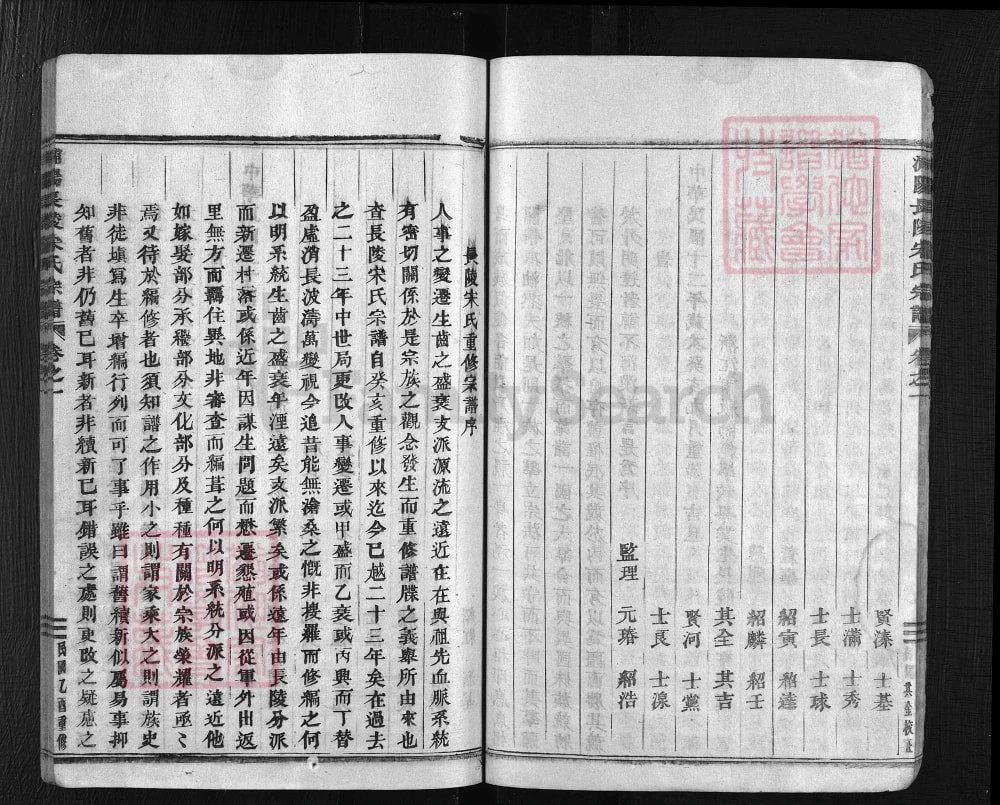 賢溱 士基
士滿 士秀
士長 士球
紹寅 紹逵
紹麟 紹壬
其全 其吉
賢河 士黨
士良 士湶
監理 元瑃 紹浩
長陵宋氏重修宗譜序
人事之變遷生齒之盛衰支派源流之遠近在在與祖先血脈系統
有密切關係於是宗族之觀念發生而重修譜牒之義舉所由來也
查長陵宋氏宗譜自癸亥重修以來迄今已越二十三年矣在過去
之二十三年中世局更改人事變遷或甲盛而乙衰或丙興而丁替
盈虛消長波濤萬變視今追昔能無滄桑之慨非搜羅而修編之何
以明系統生齒之盛衰年湮遠矣支派繁矣或係遠年由長陵分派
而新遷村落或係近年因謀生問題而懋遷懇殖或因從軍外出返
里無方而羈住異地非審查而編葺之何以明系統分派之遠近他
如嫁娶部分承繼部分文化部分及種種有關於宗族榮耀者亟亟
焉又待於編修者也須知譜之作用小之則謂家乘大之則謂族史
非徒塡寫生卒增編行列而可了事乎雖曰謂舊續新似屬易事抑
知舊者非仍舊已耳新者非續新已耳錯誤之處則更改之疑慮之
長陵宋氏宗譜 卷之一
民國乙酉重修
FamilySearch